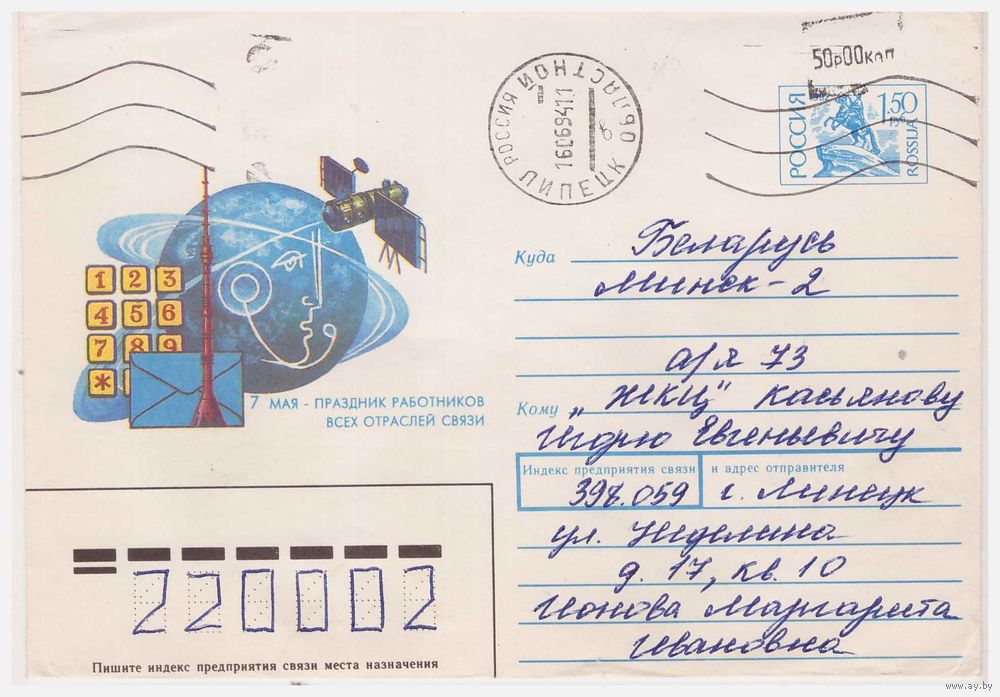 50р00коп
РОССИЯ 1992 1.50 ROSSIJA
РОССИЯ ЛИПЕЦК
16069411
Куда Беларусь
Минск-2
а/я 73
Кому „ЖКЦ" Касьянову
Игорю Евгеньевичу
Индекс предприятия связи и адрес отправителя
398.059 г. Липецк
ул. Неделина
д. 17, кв. 10
Ионова Маргарита
Ивановна
1 2 3
4 5 6
7 8 9
*
7 МАЯ - ПРАЗДНИК РАБОТНИКОВ
ВСЕХ ОТРАСЛЕЙ СВЯЗИ
220002
Пишите индекс предприятия связи места назначения
www.ay.by